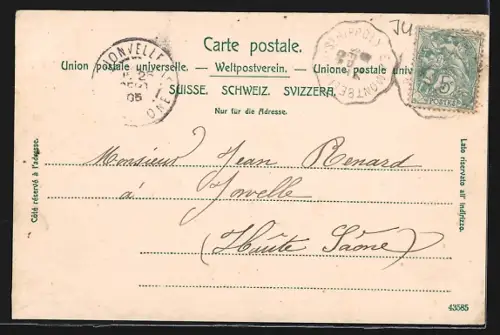 Carte postale.
Union postale universelle. — Weltpostverein. — Unione postale univ
SUISSE. SCHWEIZ. SVIZZERA.
Nur für die Adresse.
Côté réservé à l'adresse.
Lato riservato all' indirizzo.
Monsieur Jean Renard
à Jonvelle
(Haute Saône)
43585
JONVELLE
05
5
POSTES